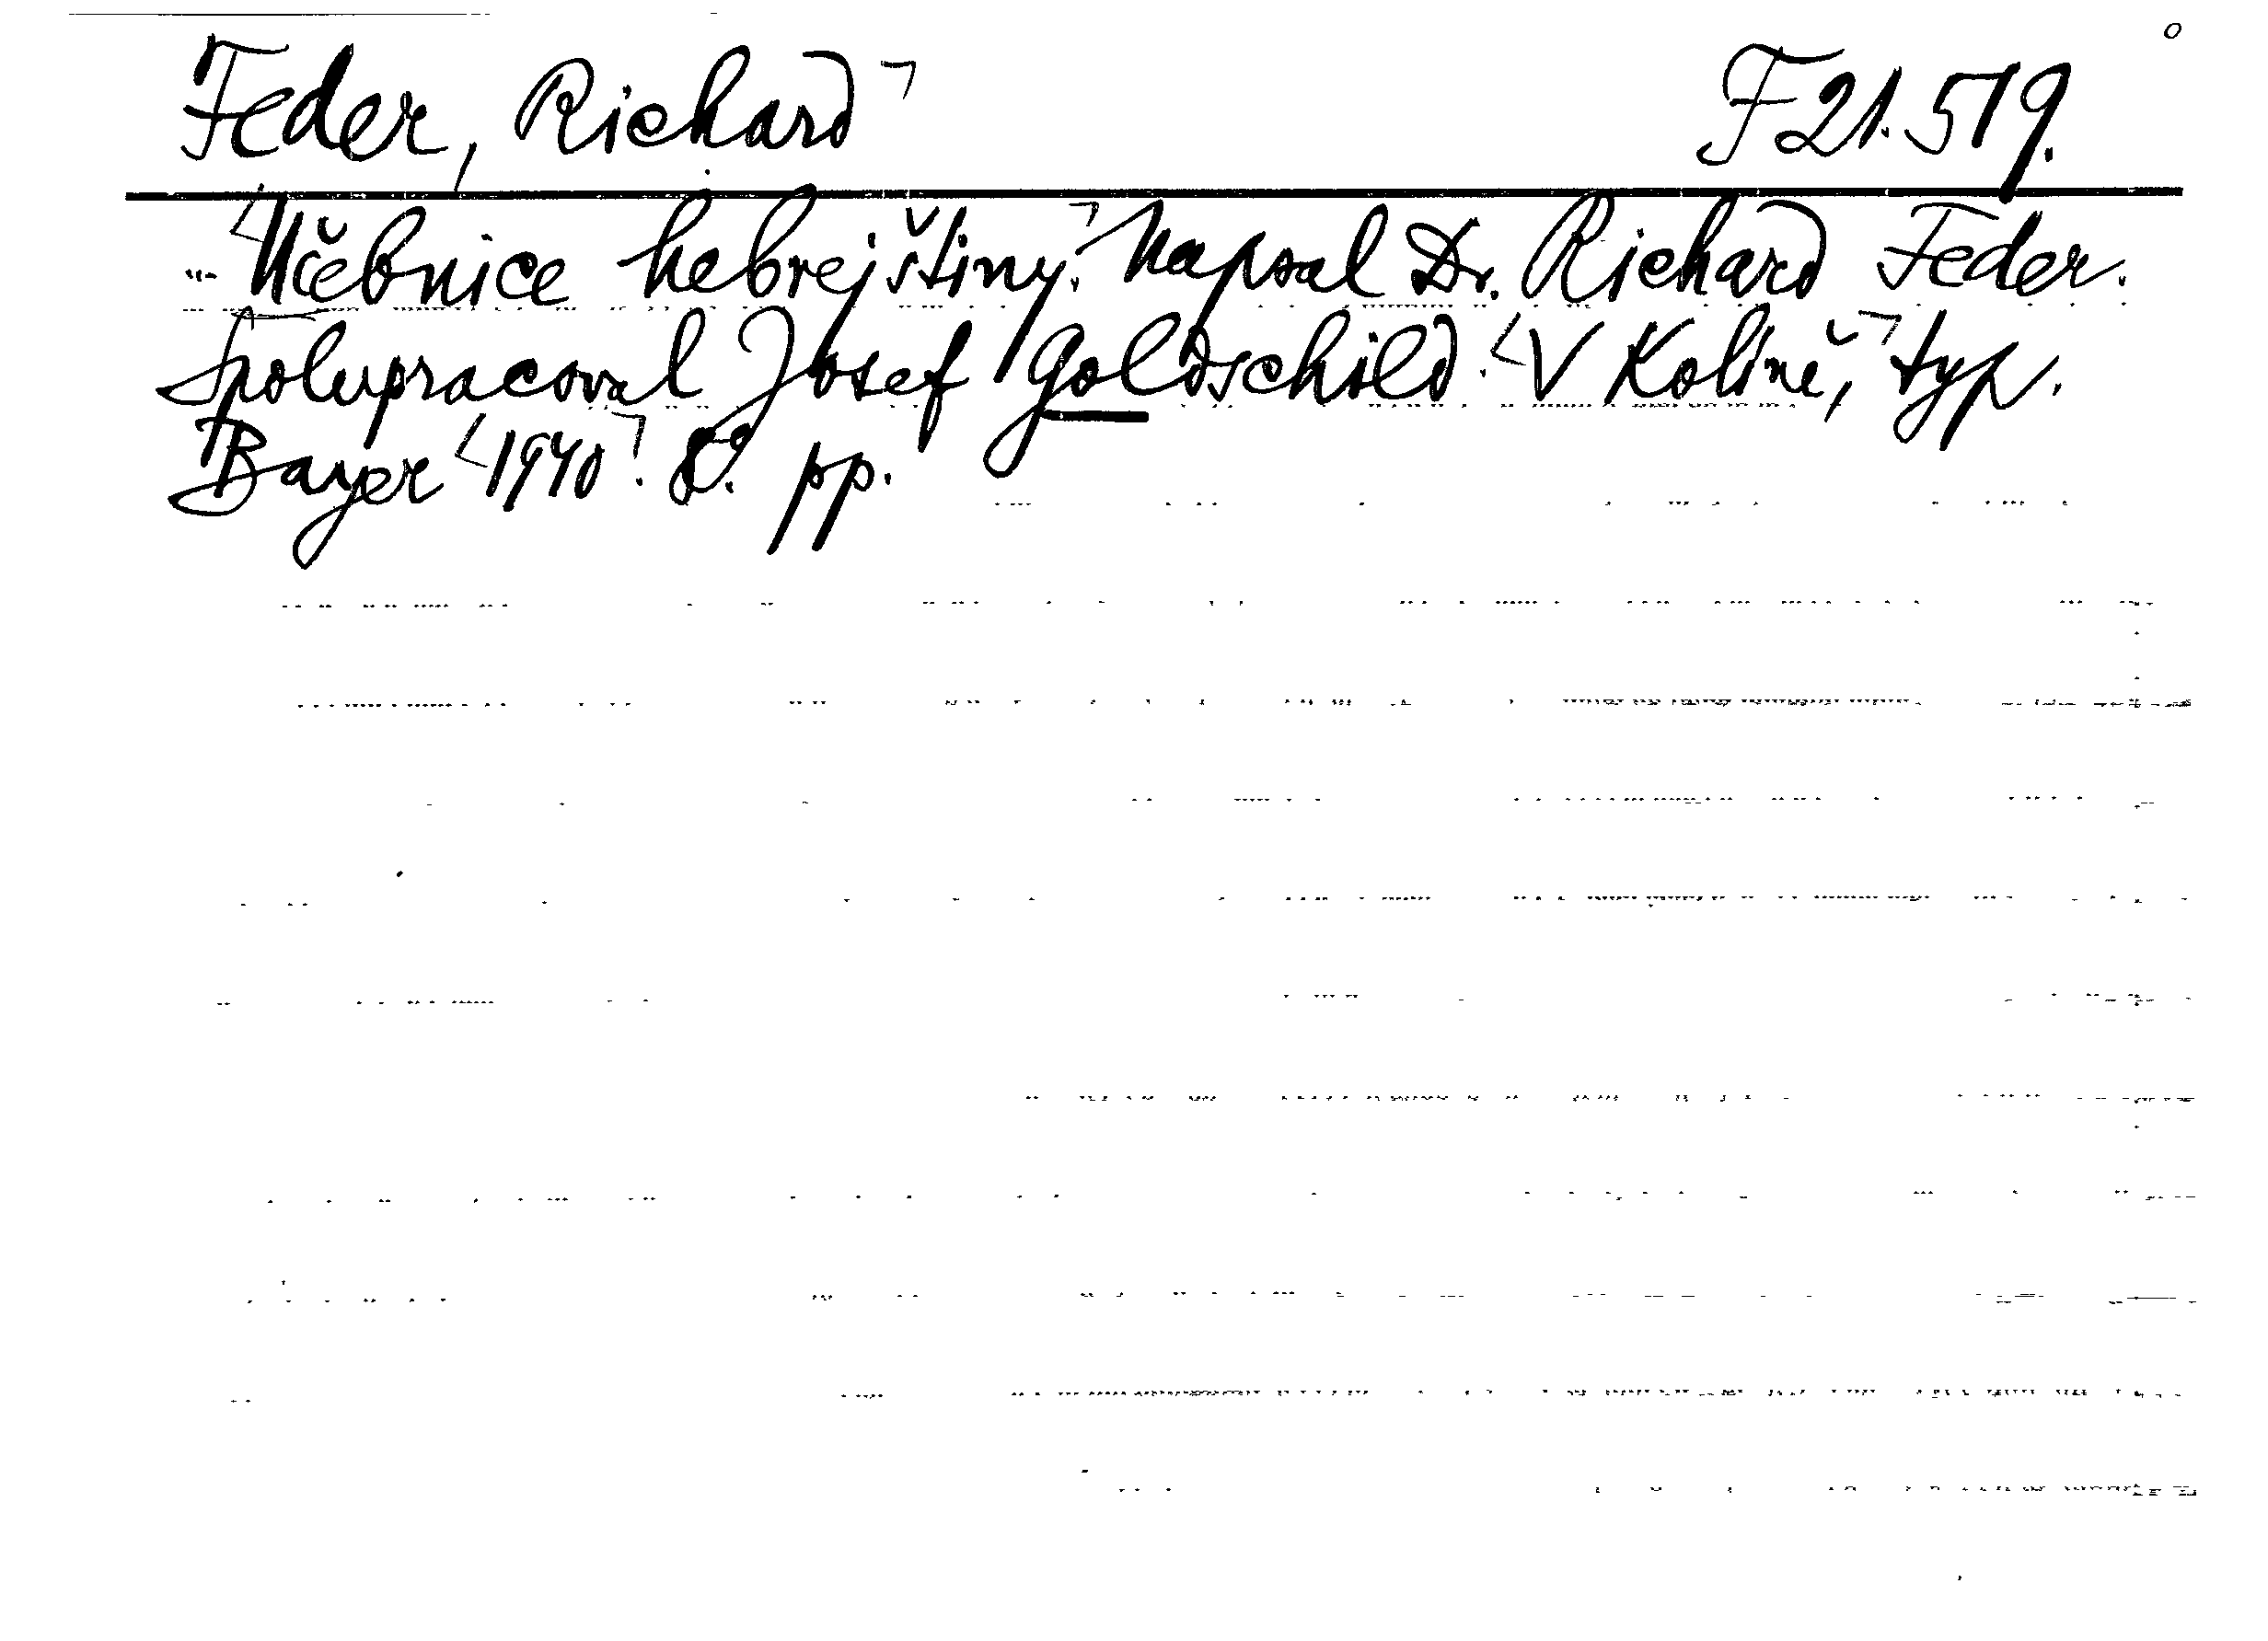 Feder, Richard F 21.519.
Učebnice hebrejštiny. Napsal Dr. Richard Feder.
Spolupracoval Josef Goldschild. V Kolíně, typ.
Bayer 1940. 8°. pp.